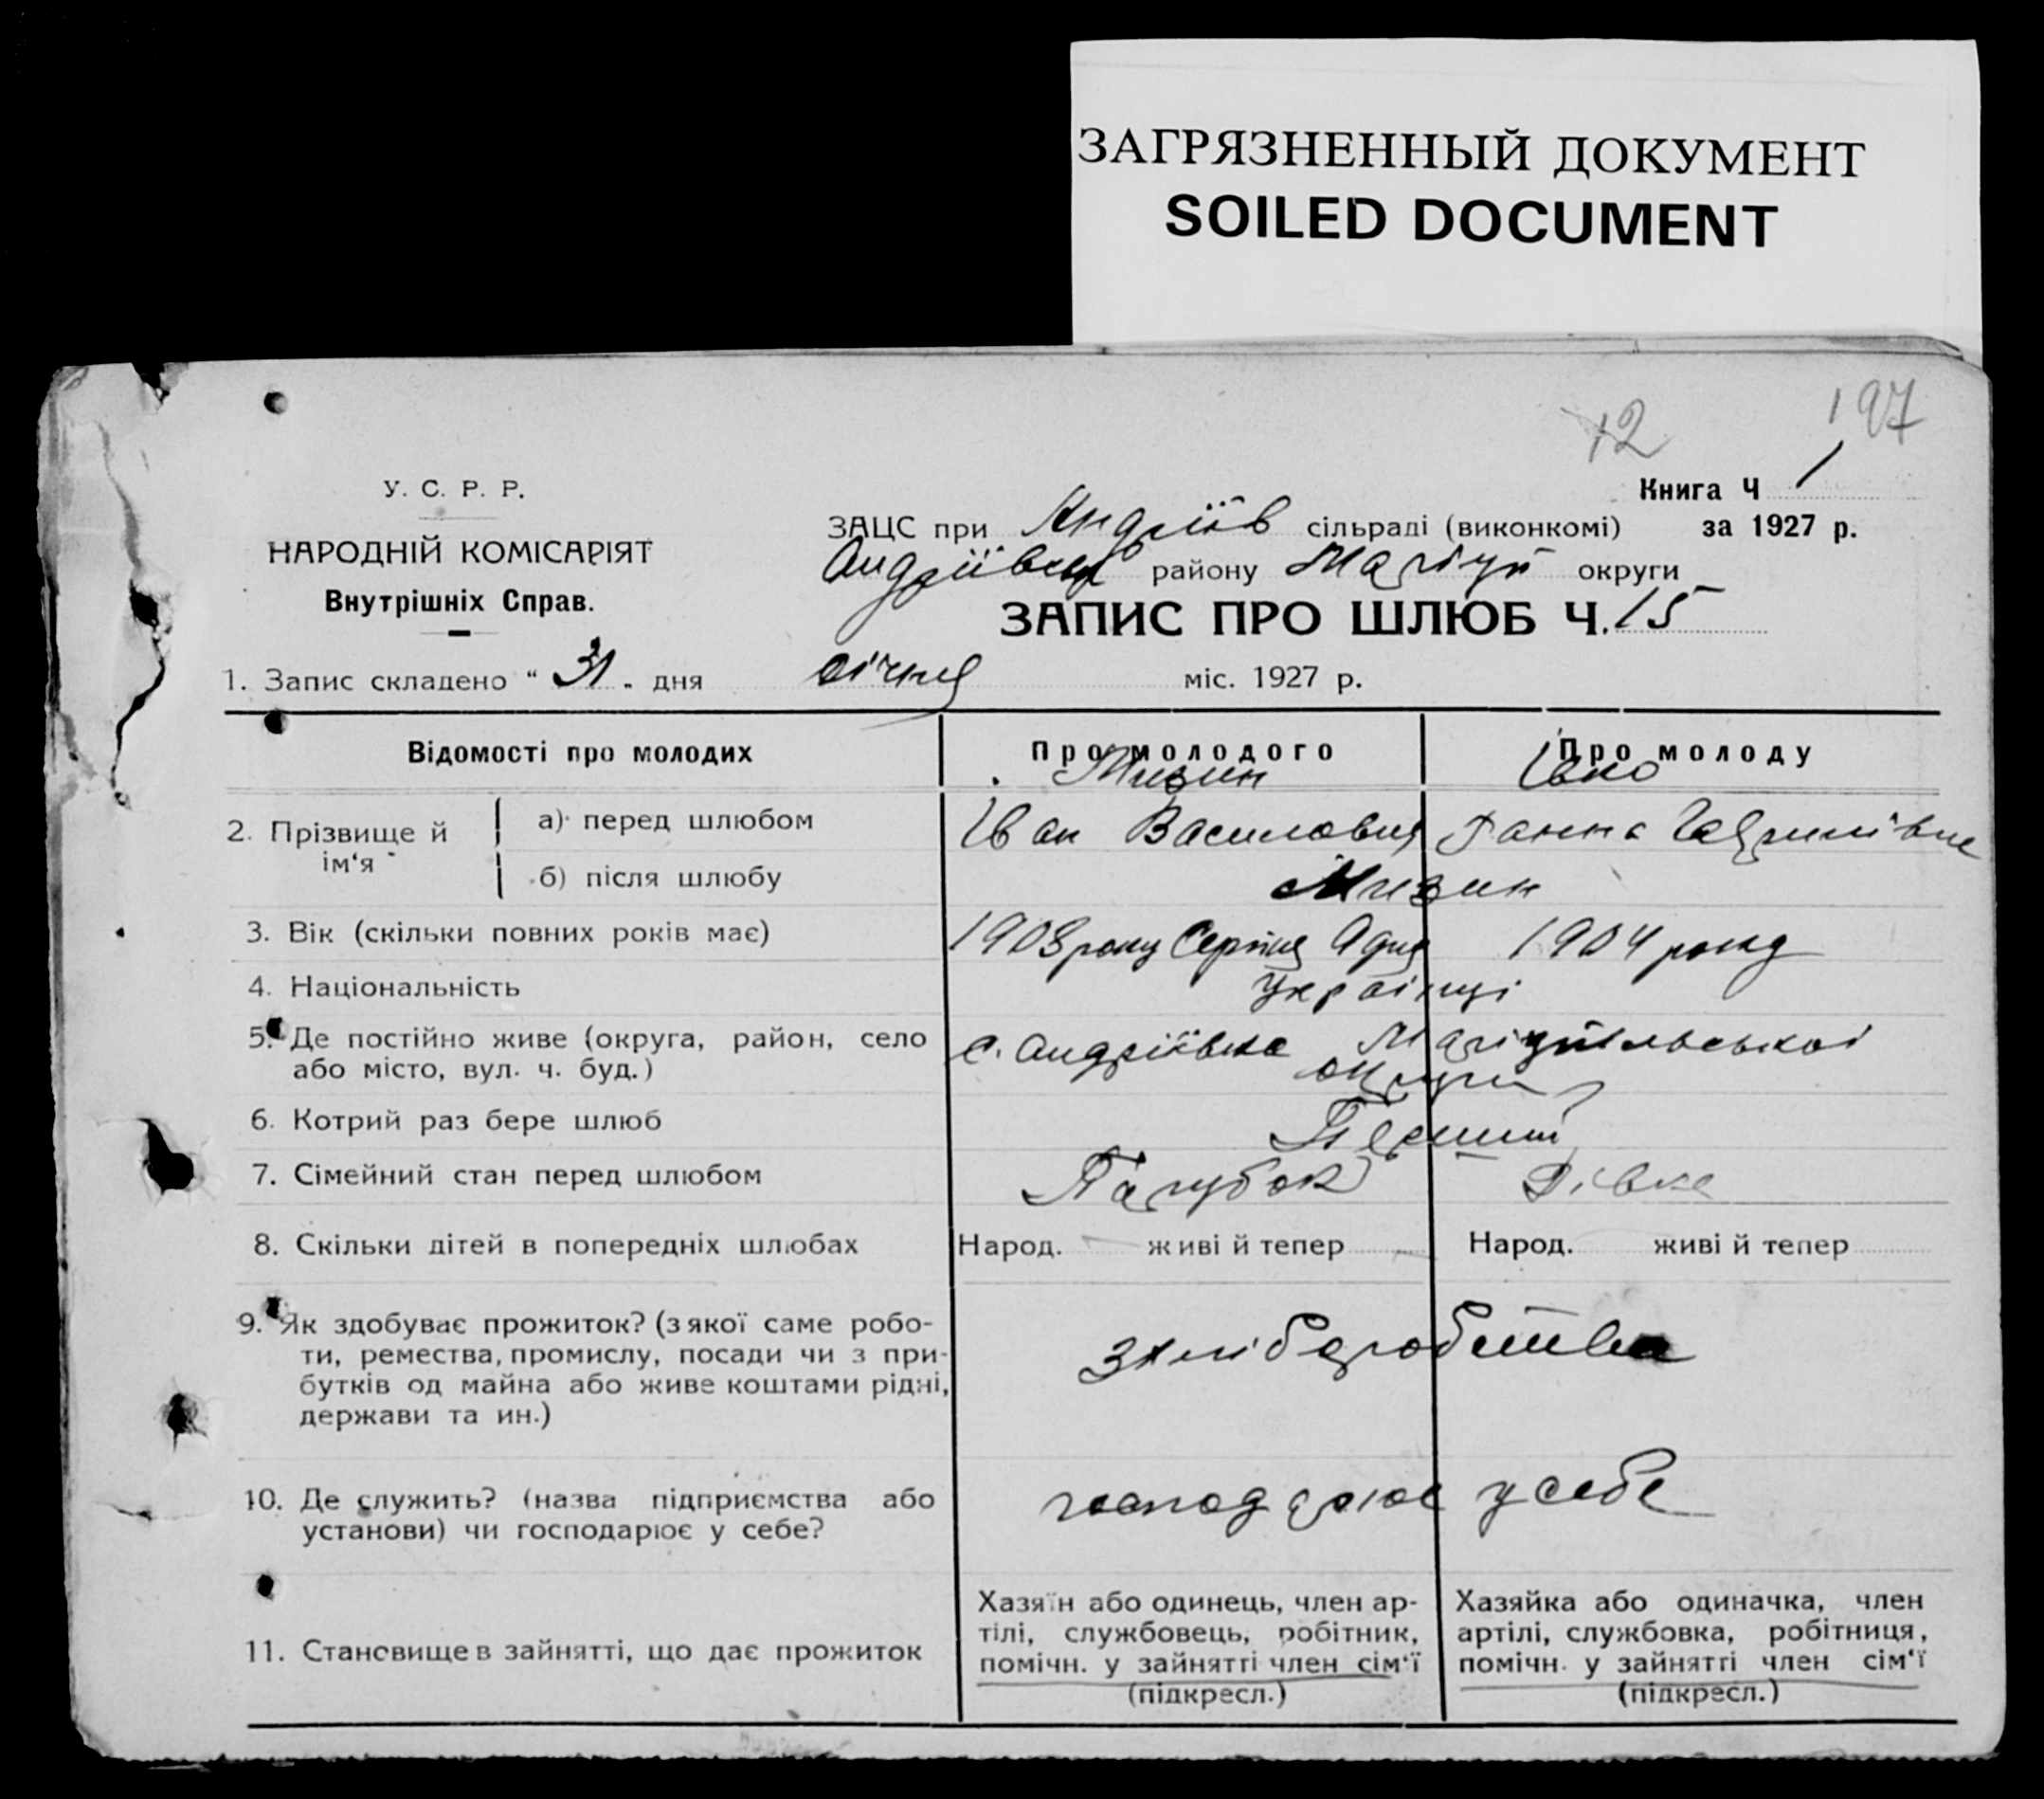 ЗАГРЯЗНЕННЫЙ ДОКУМЕНТ
SOILED DOCUMENT
12 197
У. С. Р. Р.
НАРОДНІЙ КОМІСАРІЯТ
Внутрішніх Справ.
Книга Ч 1
ЗАЦС при Андріїв сільраді (виконкомі) за 1927 р.
Андріївськ району Маріуп округи
ЗАПИС ПРО ШЛЮБ Ч. 15
1. Запис складено “ 31 „ дня січня міс. 1927 р.
Відомості про молодих Про молодого Про молоду
Мизин Івко
2. Прізвище й ім‘я а) перед шлюбом Іван Василович Ганна Гаврилівна
б) після шлюбу Мизин
3. Вік (скільки повних років має) 1908 року Серпня 9 дня 1904 року
4. Національність Українці
5. Де постійно живе (округа, район, село с. Андріївка Маріупільської
або місто, вул. ч. буд.) округи
6. Котрий раз бере шлюб Перший
7. Сімейний стан перед шлюбом Парубок Дівка
8. Скільки дітей в попередніх шлюбах Народ. — живі й тепер — Народ. живі й тепер
9. Як здобуває прожиток? (з якої саме робо-
ти, ремества, промислу, посади чи з при- з хліборобства
бутків од майна або живе коштами рідні,
держави та ин.)
10. Де служить? (назва підприємства або господарює у себе
установи) чи господарює у себе?
11. Становище в зайнятті, що дає прожиток
Хазяїн або одинець, член ар-
тілі, службовець, робітник,
помічн. у зайнятті член сім‘ї
(підкресл.)
Хазяйка або одиначка, член
артілі, службовка, робітниця,
помічн. у зайнятті член сім‘ї
(підкресл.)